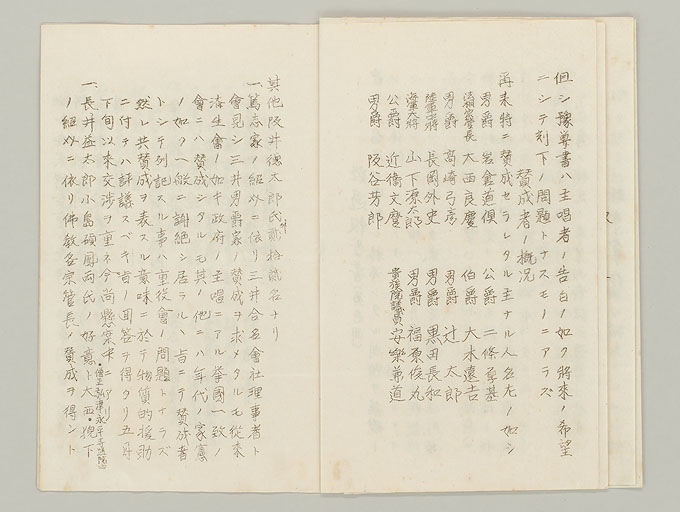 但シ豫算書ハ主唱者ノ告白ノ如ク將來ノ希望
ニシテ刻下ノ問題トナスモノニアラズ
賛成者ノ概況
再來特ニ賛成セラレタル主ナル人名左ノ如シ
男爵 岩倉道倶 公爵 二條厚基
法相宗管長 大西良慶 伯爵 大木遠吉
男爵 高崎弓彦 男爵 辻太郎
陸軍中將 長岡外史 男爵 黒田長和
海軍大將 山下源太郎 男爵 福原俊丸
公爵 近衞文麿 貴族院議員 安樂兼道
男爵 阪谷芳郎
其他阪井德太郎氏外貳拾貳名ナリ
一、篤志家ノ紹介ニ依リ三井合名會社理事者ト
會見シ三井男爵家ノ賛成ヲ求メタルモ從來
済生會ノ如キ政府ノ主唱ニアル挙國一致ノ
會ニハ賛成シタルモ其ノ他ニハ年代ノ家憲
ノ如ク一般ニ謝絶シ居ラルヽ旨ニテ賛成者
トシテ列記スル事ハ重役會ノ問題トナラズ
然レ共賛成ヲ表スル意味ニ於テ物質的援助
ニ付テハ評議スベキ旨ノ回答ヲ得タリ五月
下旬以來交渉ヲ重ネ今尚懸案中ニアリ
一、長井益太郎小島碩鳳両氏ノ好意ト大西
ノ紹介ニ依リ佛敎各宗管長ノ賛成ヲ得ント